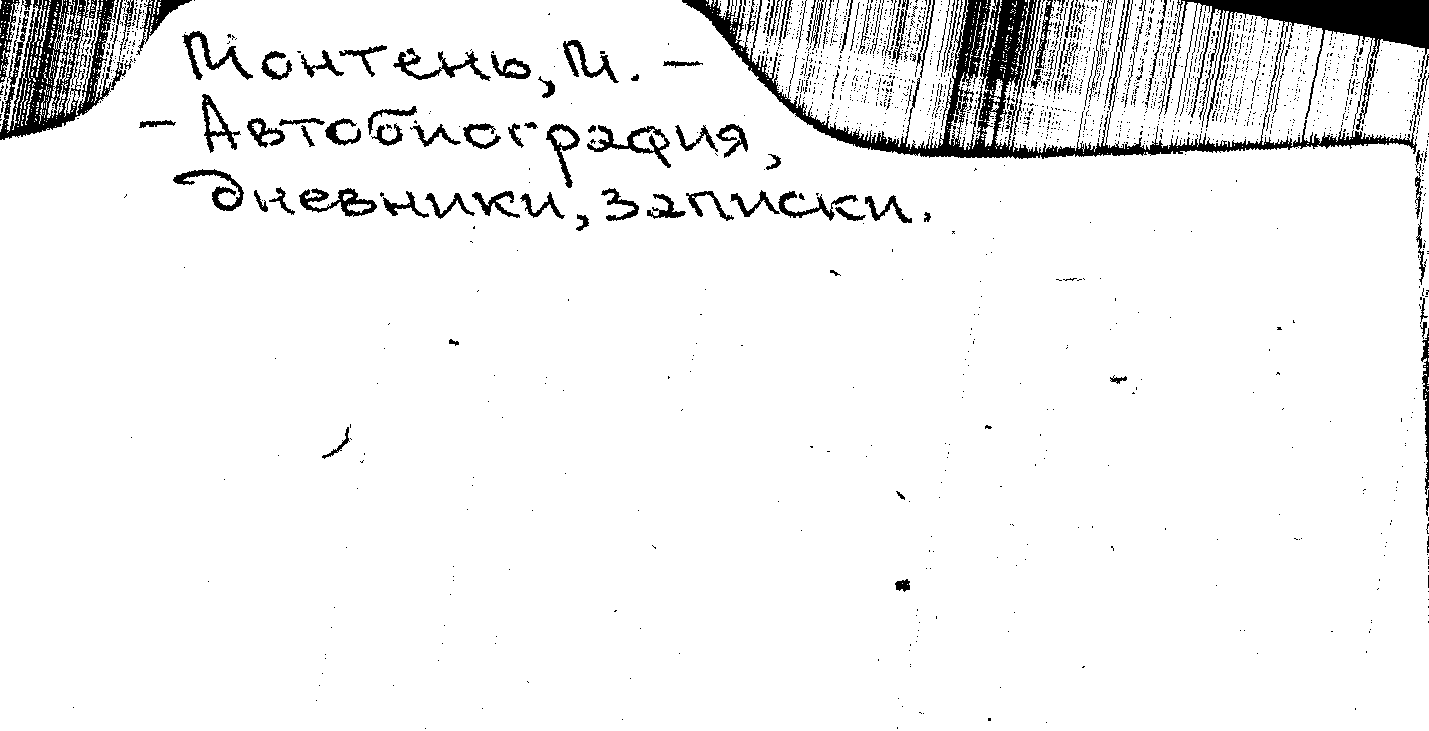 Монтень, М. –
– Автобиография,
дневники, записки.